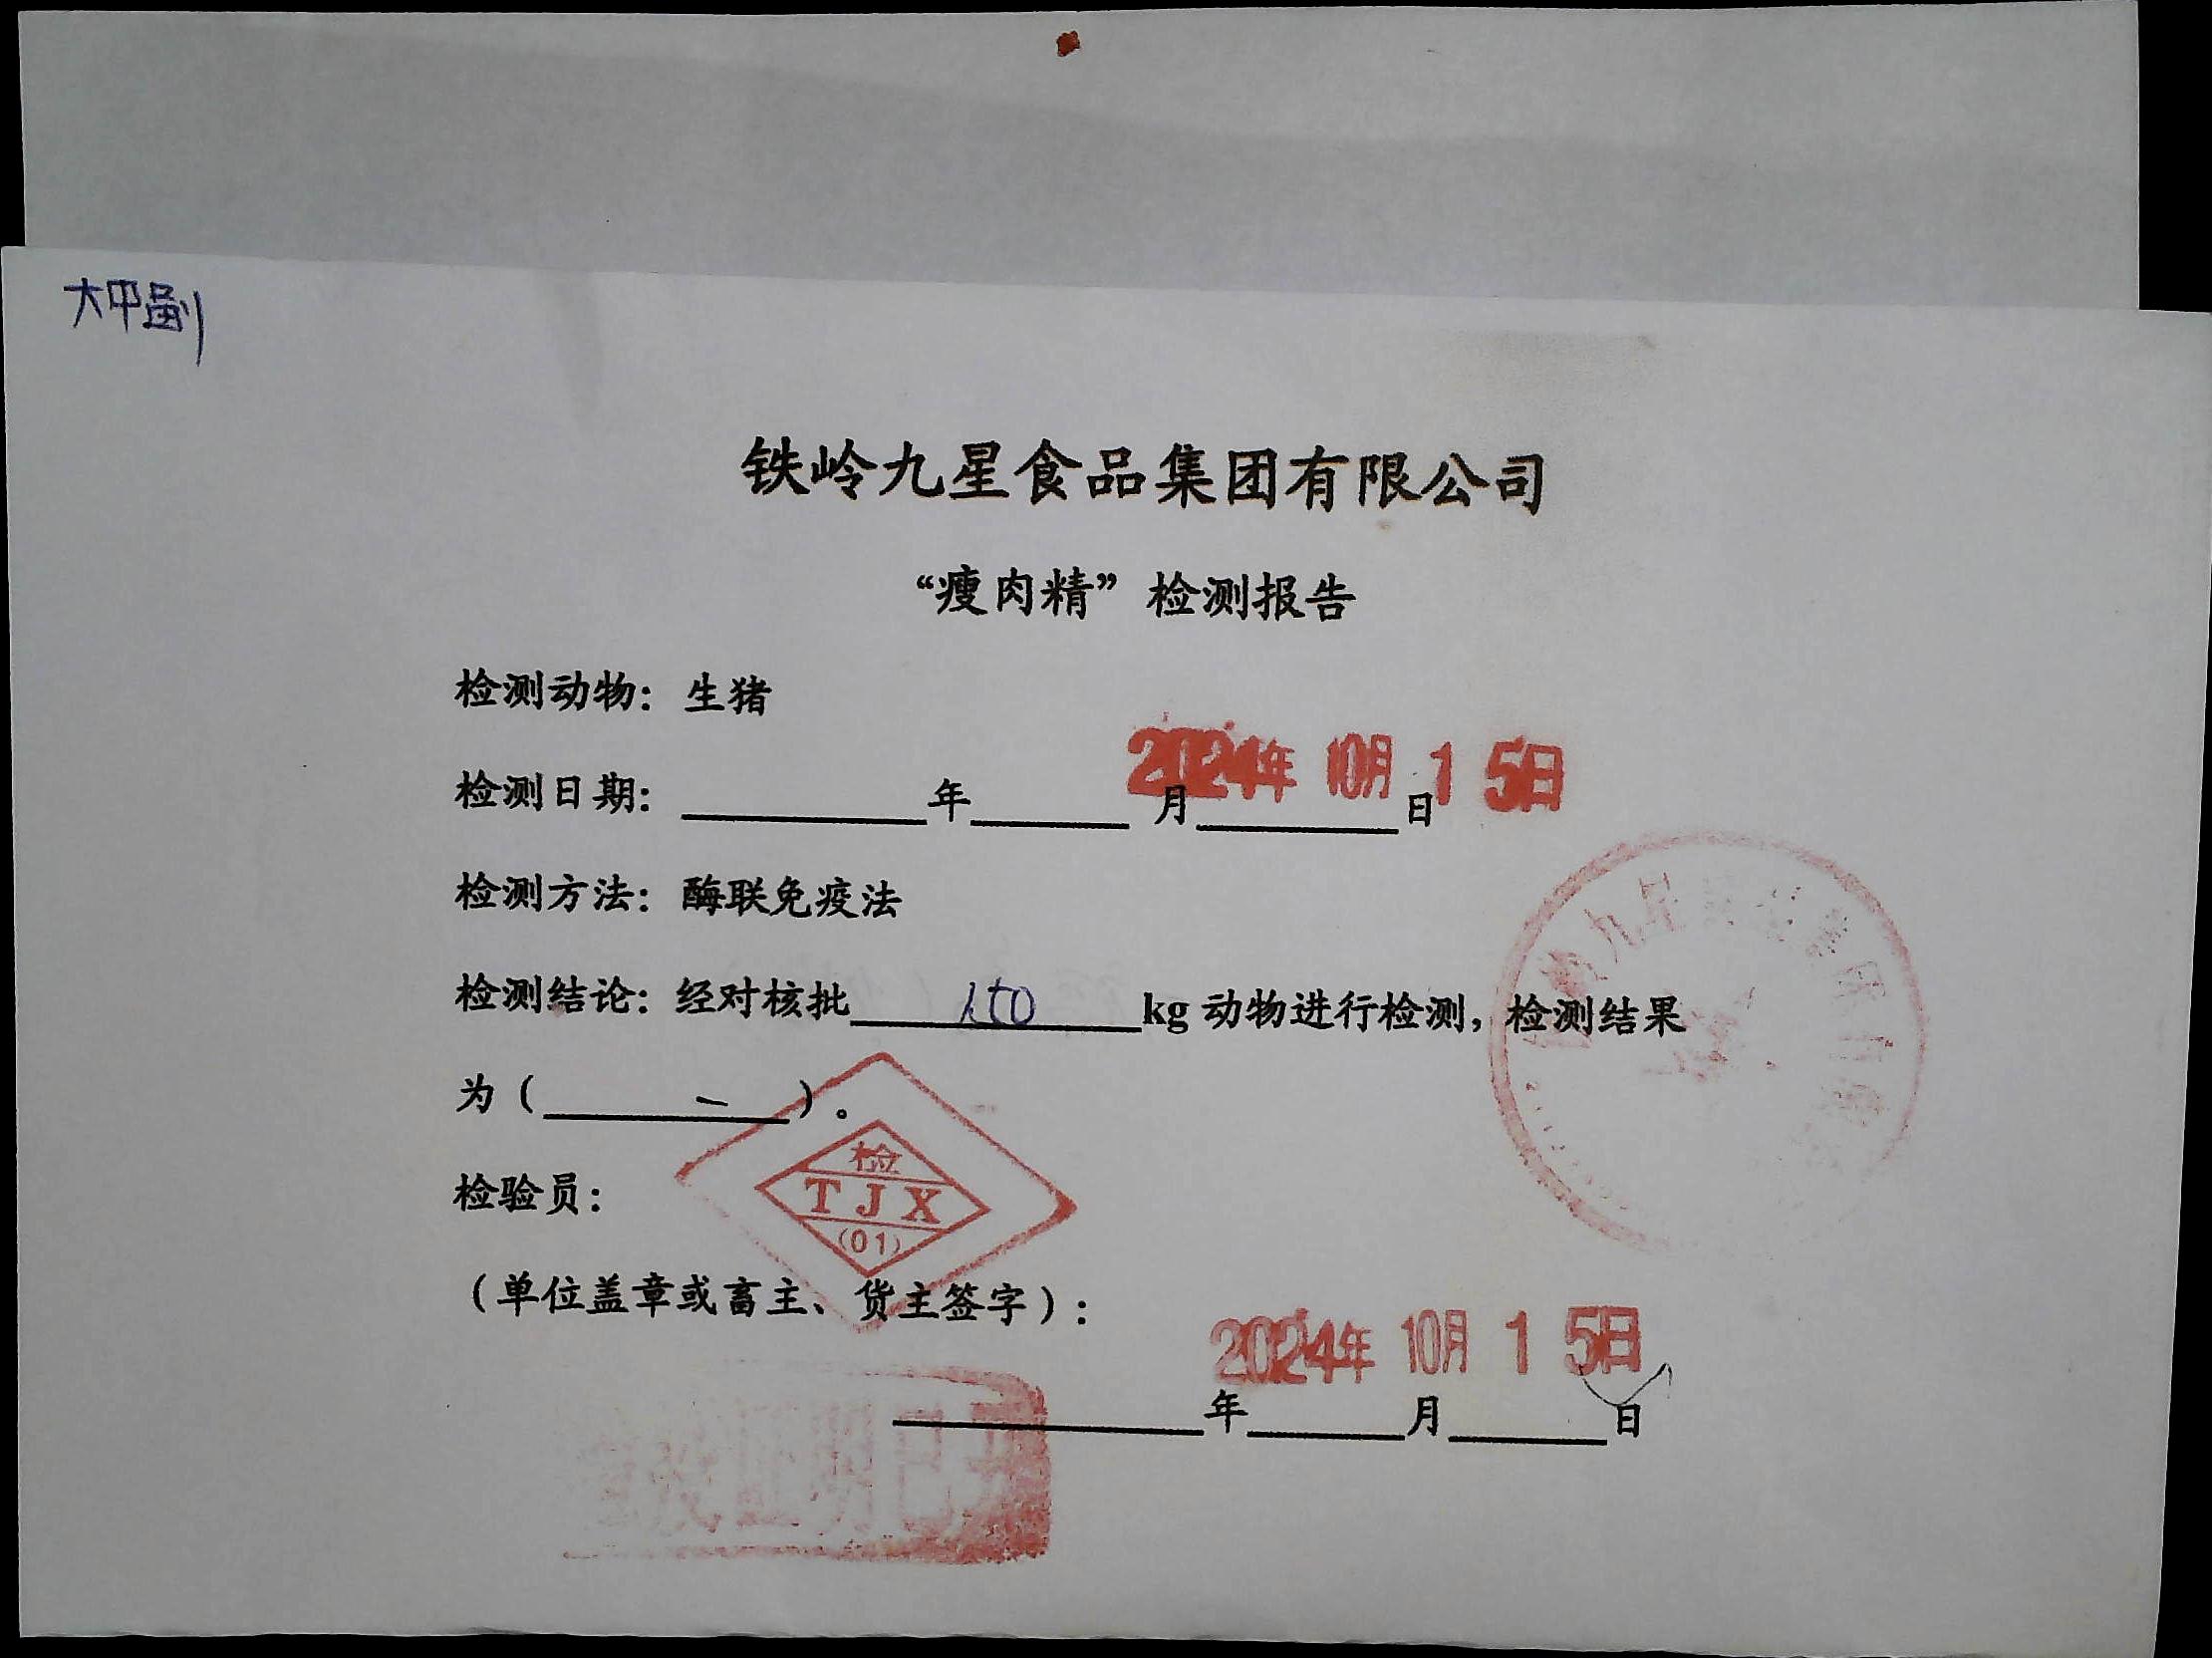 铁岭九星食品集团有限公司
“瘦肉精”检测报告
检测动物：生猪
检测日期：年月日
2024年10月15日
检测方法：酶联免疫法
检测结论：经对核批150kg动物进行检测，检测结果
为（ - ）。
检验员：
检
TJX
(01)
（单位盖章或畜主、货主签字）：
2024年10月15日
年月日